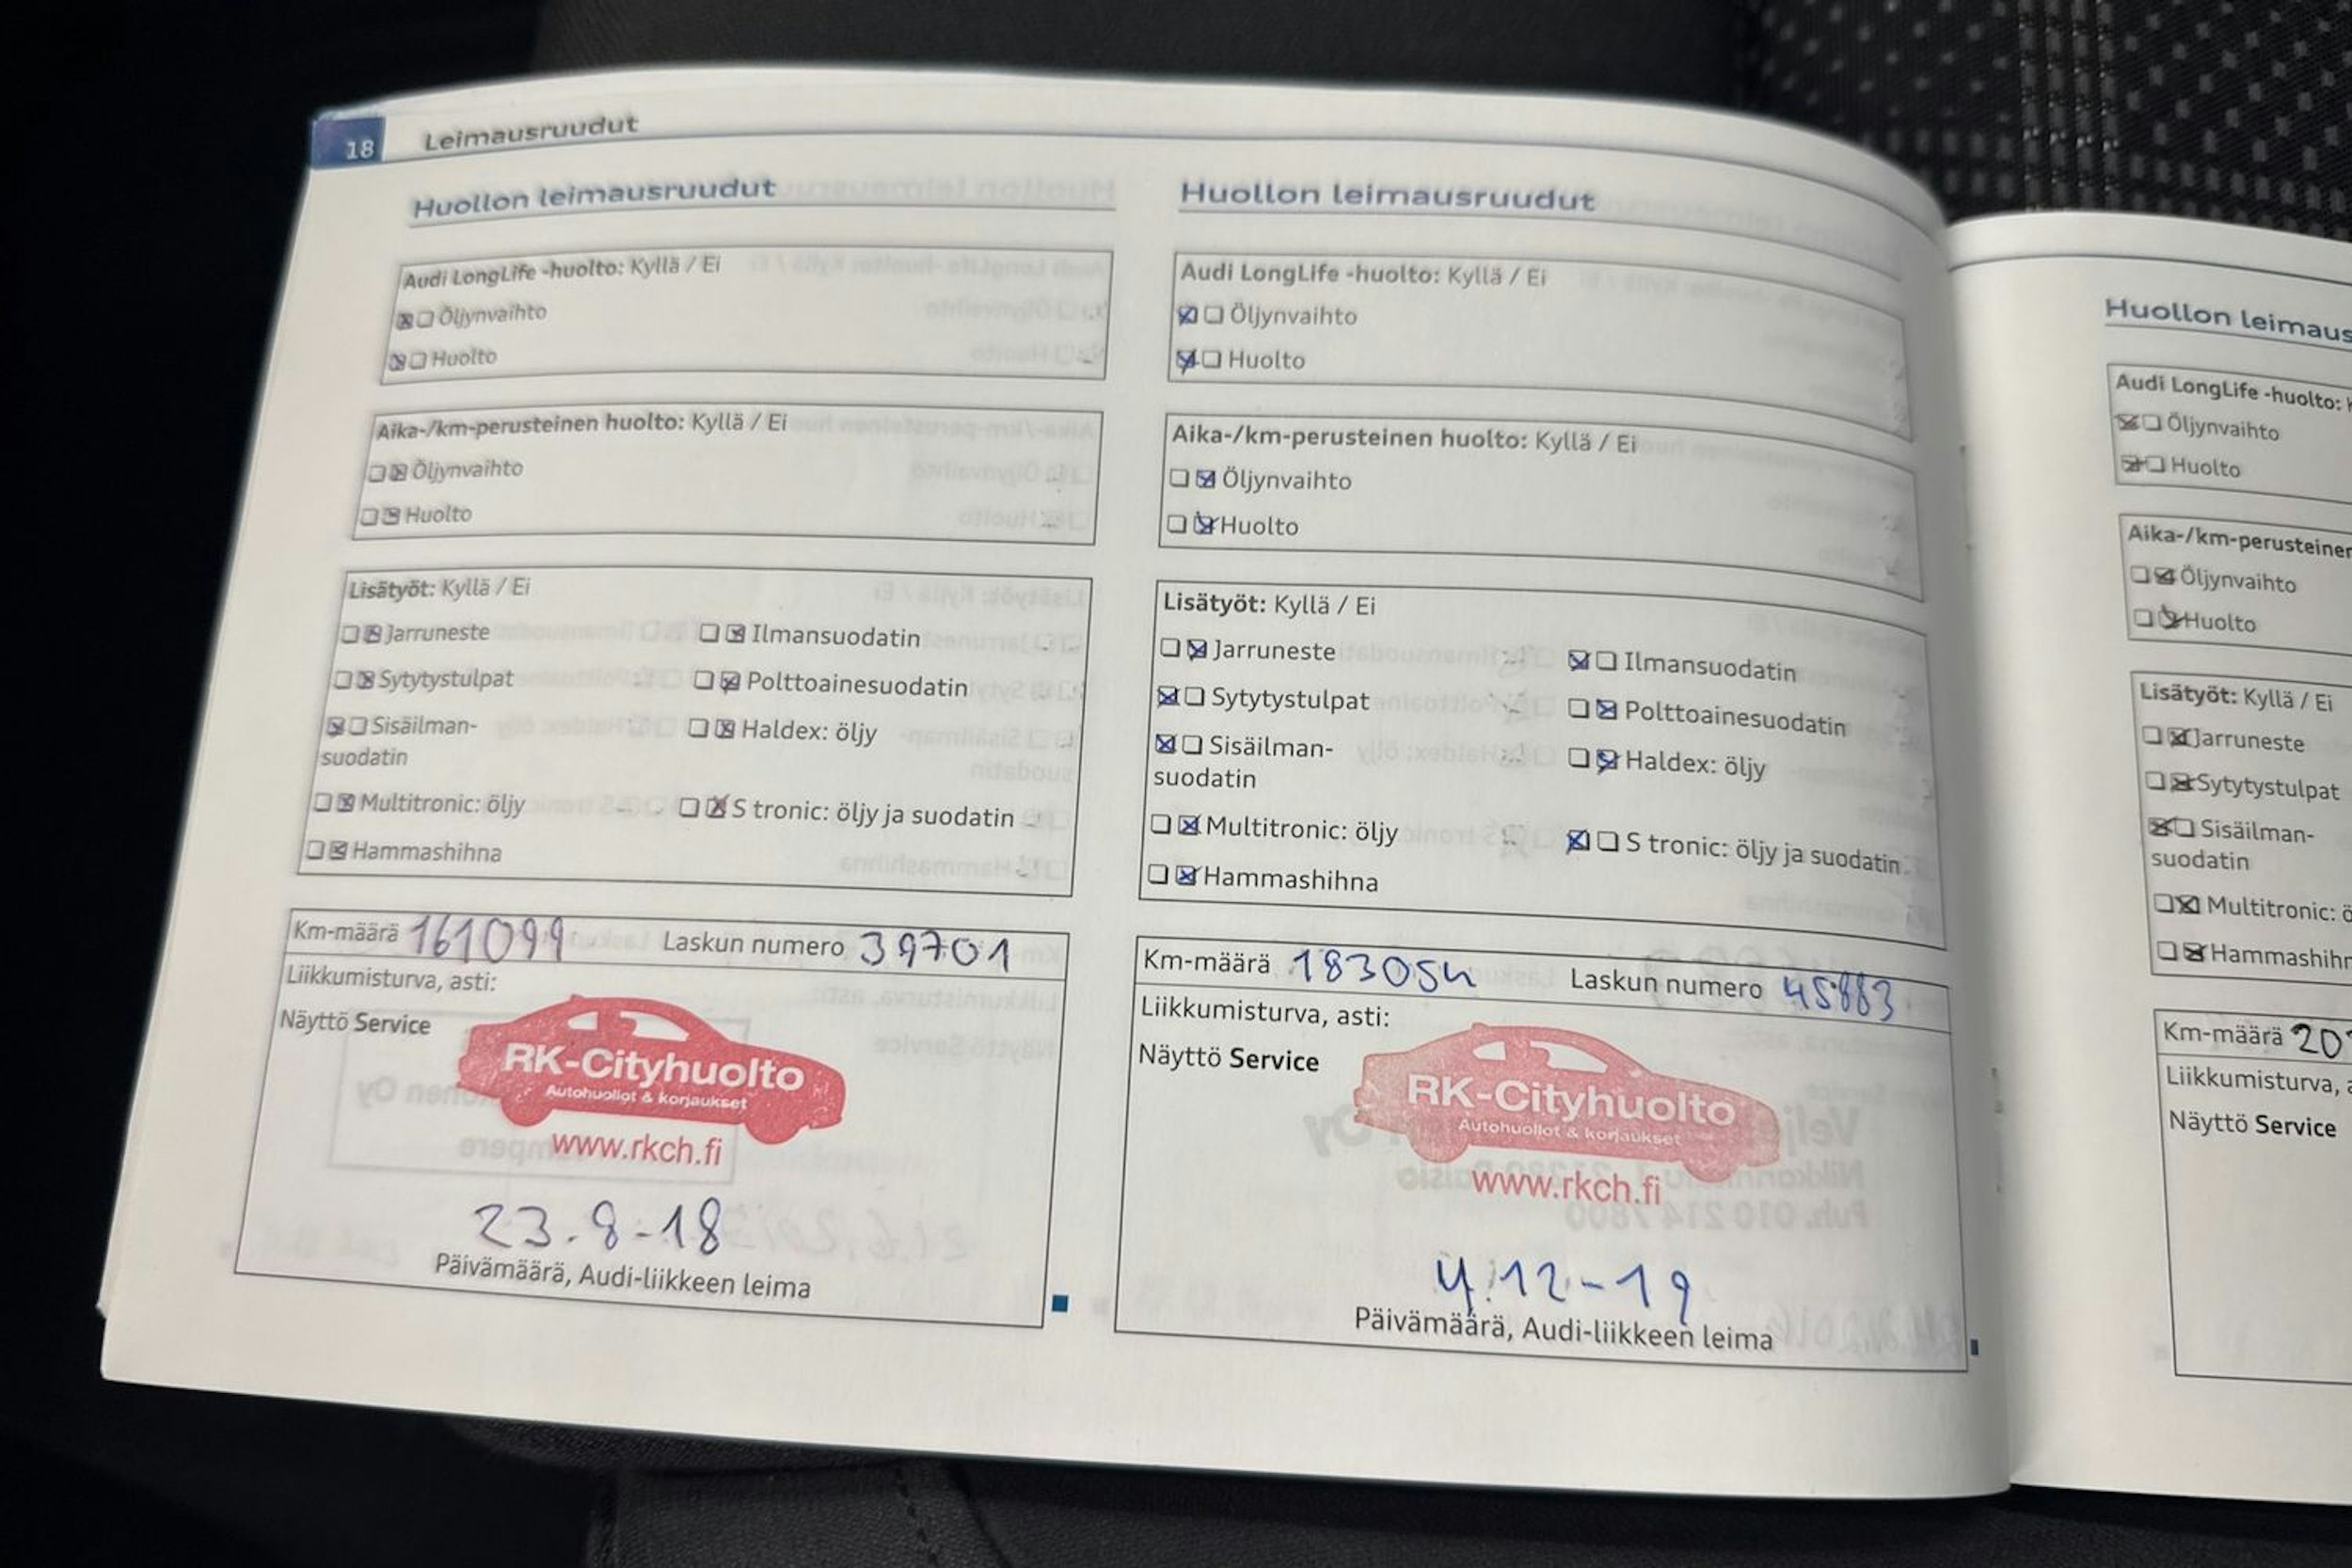 18 Leimausruudut
Huollon leimausruudut
Audi LongLife -huolto: Kyllä / Ei
☒☐ Öljynvaihto
☒☐ Huolto
Aika-/km-perusteinen huolto: Kyllä / Ei
☐☒ Öljynvaihto
☐☒ Huolto
Lisätyöt: Kyllä / Ei
☐☒ Jarruneste ☐☒ Ilmansuodatin
☐☒ Sytytystulpat ☐☒ Polttoainesuodatin
☒☐ Sisäilman- ☐☒ Haldex: öljy
suodatin
☐☒ Multitronic: öljy ☐☒ S tronic: öljy ja suodatin
☐☒ Hammashihna
Km-määrä 161099 Laskun numero 39701
Liikkumisturva, asti:
Näyttö Service
RK-Cityhuolto
Autohuollot & korjaukset
www.rkch.fi
23.8-18
Päivämäärä, Audi-liikkeen leima
Huollon leimausruudut
Audi LongLife -huolto: Kyllä / Ei
☒☐ Öljynvaihto
☒☐ Huolto
Aika-/km-perusteinen huolto: Kyllä / Ei
☐☒ Öljynvaihto
☐☒ Huolto
Lisätyöt: Kyllä / Ei
☐☒ Jarruneste ☒☐ Ilmansuodatin
☒☐ Sytytystulpat ☐☒ Polttoainesuodatin
☒☐ Sisäilman- ☐☒ Haldex: öljy
suodatin
☐☒ Multitronic: öljy ☒☐ S tronic: öljy ja suodatin
☐☒ Hammashihna
Km-määrä 183054 Laskun numero 45883
Liikkumisturva, asti:
Näyttö Service
RK-Cityhuolto
Autohuollot & korjaukset
www.rkch.fi
4.12-19
Päivämäärä, Audi-liikkeen leima
Huollon leimaus
Audi LongLife -huolto:
☒☐ Öljynvaihto
☒☐ Huolto
Aika-/km-perusteinen
☐☒ Öljynvaihto
☐☒ Huolto
Lisätyöt: Kyllä / Ei
☐☒ Jarruneste
☐☒ Sytytystulpat
☒☐ Sisäilman-
suodatin
☐☒ Multitronic: ö
☐☒ Hammashihn
Km-määrä 20
Liikkumisturva, a
Näyttö Service